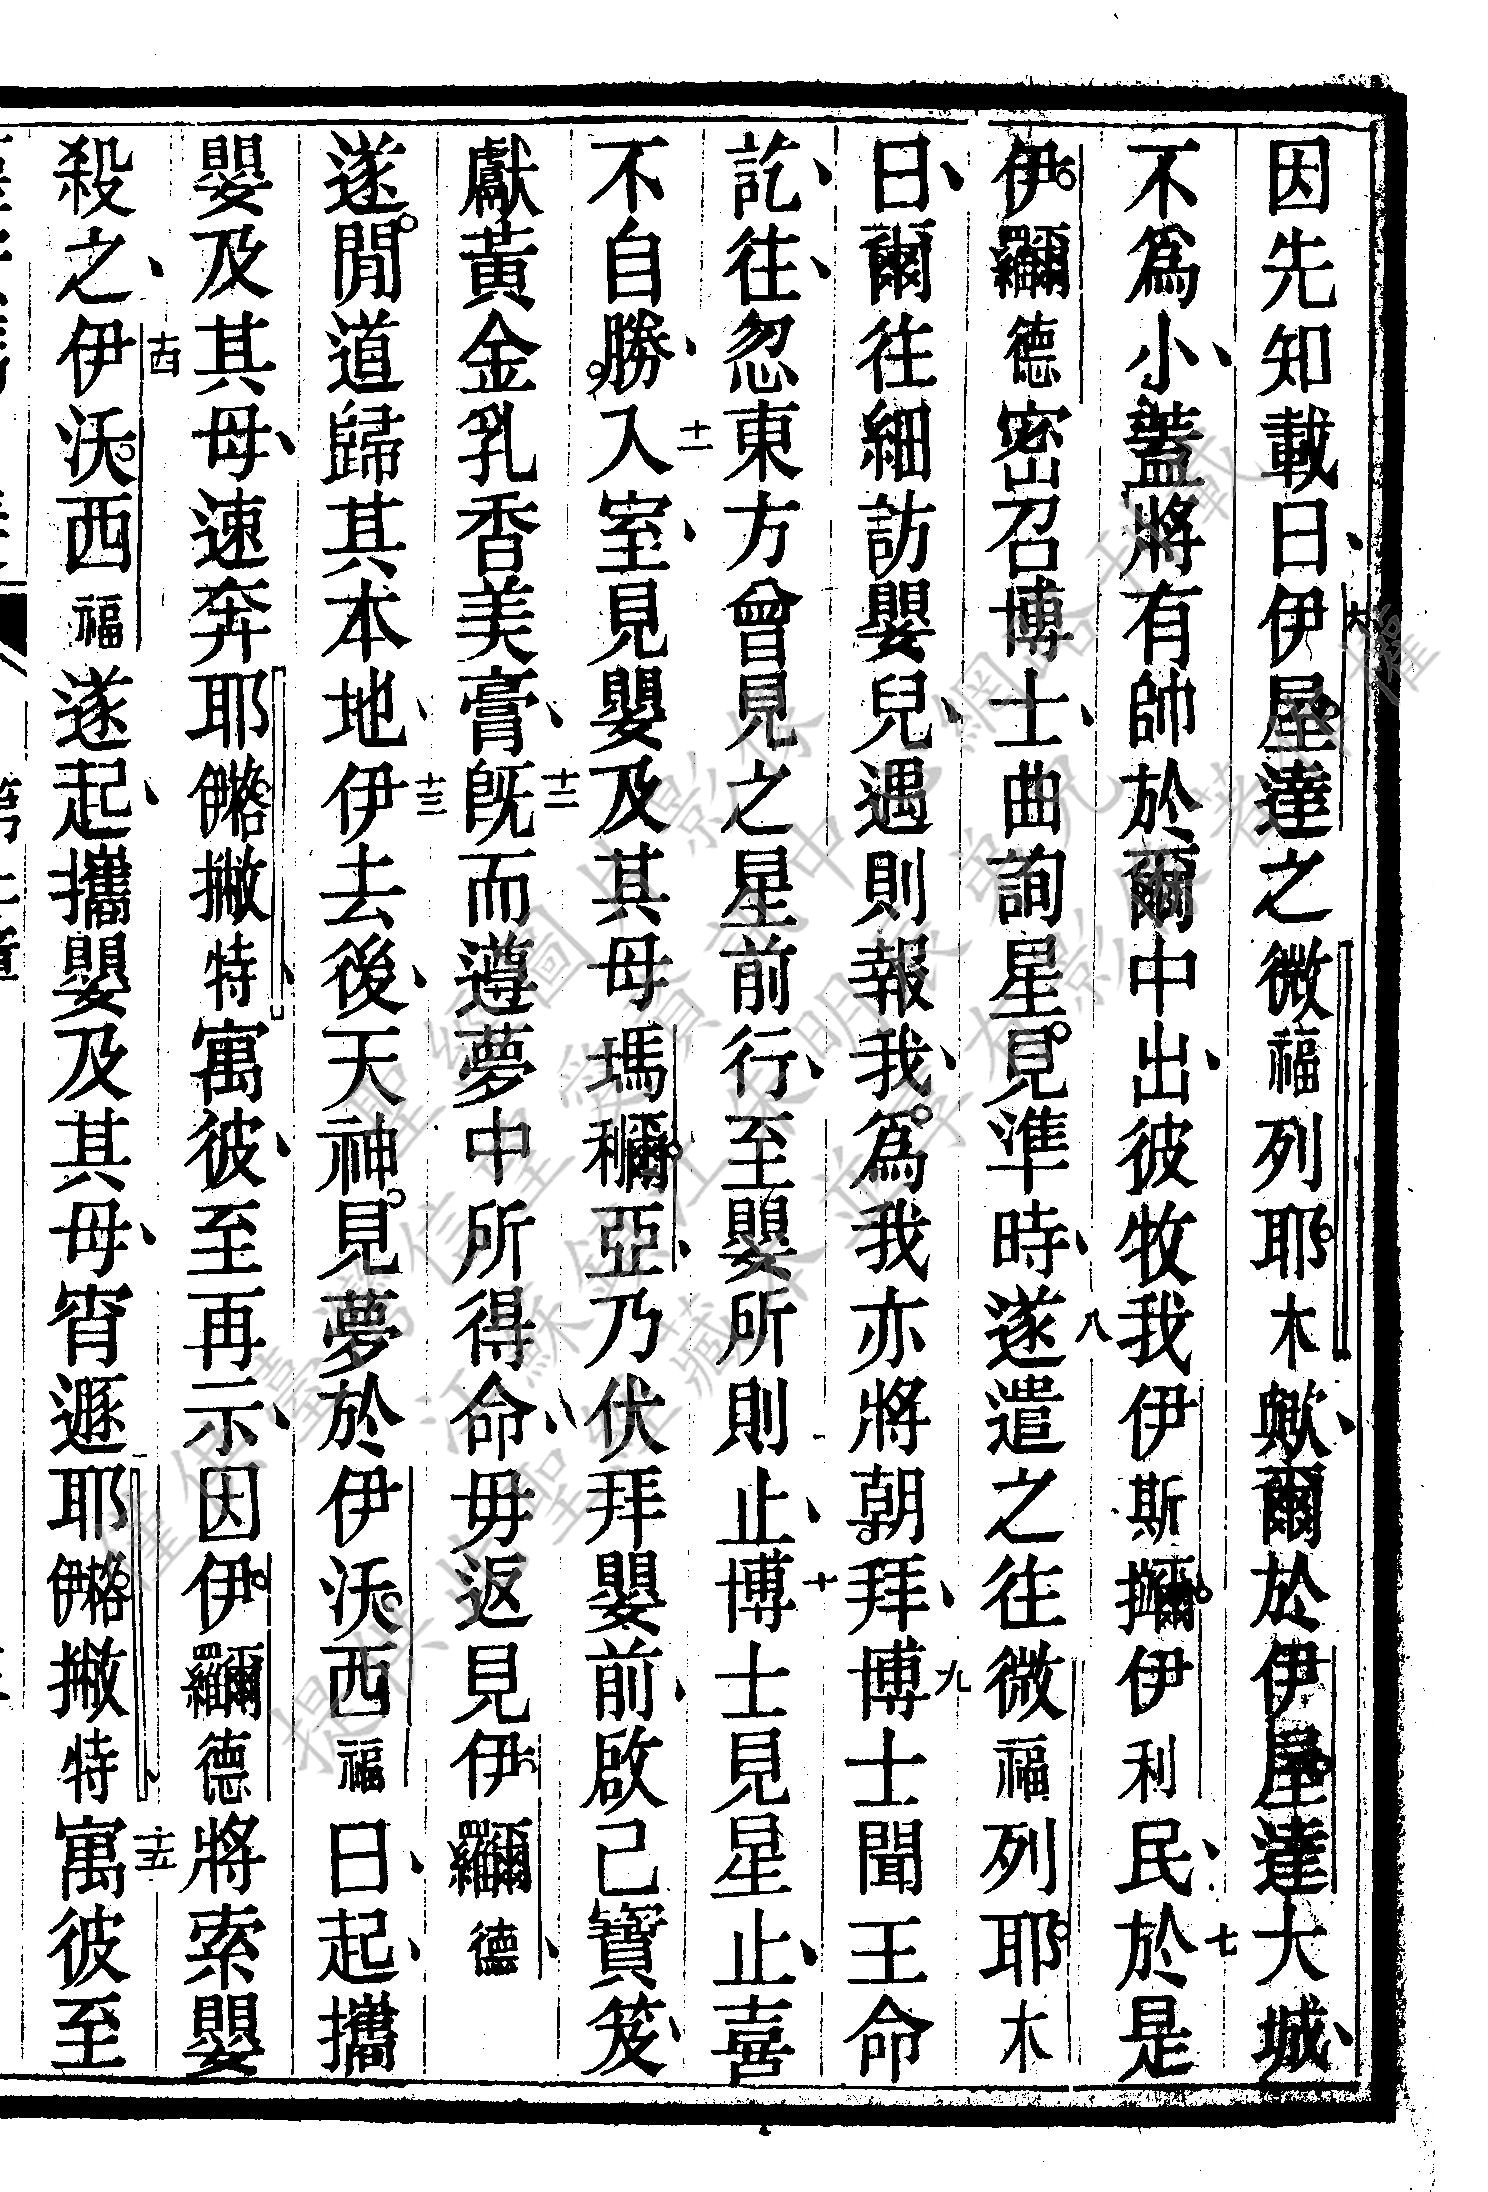 因先知載曰六伊屋達之微福列耶木歟爾於伊屋達大城
不為小蓋將有帥於爾中出彼牧我伊斯伊利民七於是
伊德密召博士曲詢星見準時八遂遣之往微福列耶木
曰爾往細訪嬰兒遇則報我為我亦將朝拜九博士聞王命
訖往忽東方曾見之星前行至嬰所則止十博士見星止喜
不自勝十一入室見嬰及其母瑪亞乃伏拜嬰前啟己寶笈
獻黃金乳香美膏十二既而遵夢中所得命毋返見伊德
遂閒道歸其本地十三伊去後天神見夢於伊沃西福曰起攜
嬰及其母速奔耶撇特寓彼至再示因伊德將索嬰
殺之十四伊沃西福遂起攜嬰及其母宵遯耶撇特十五寓彼至